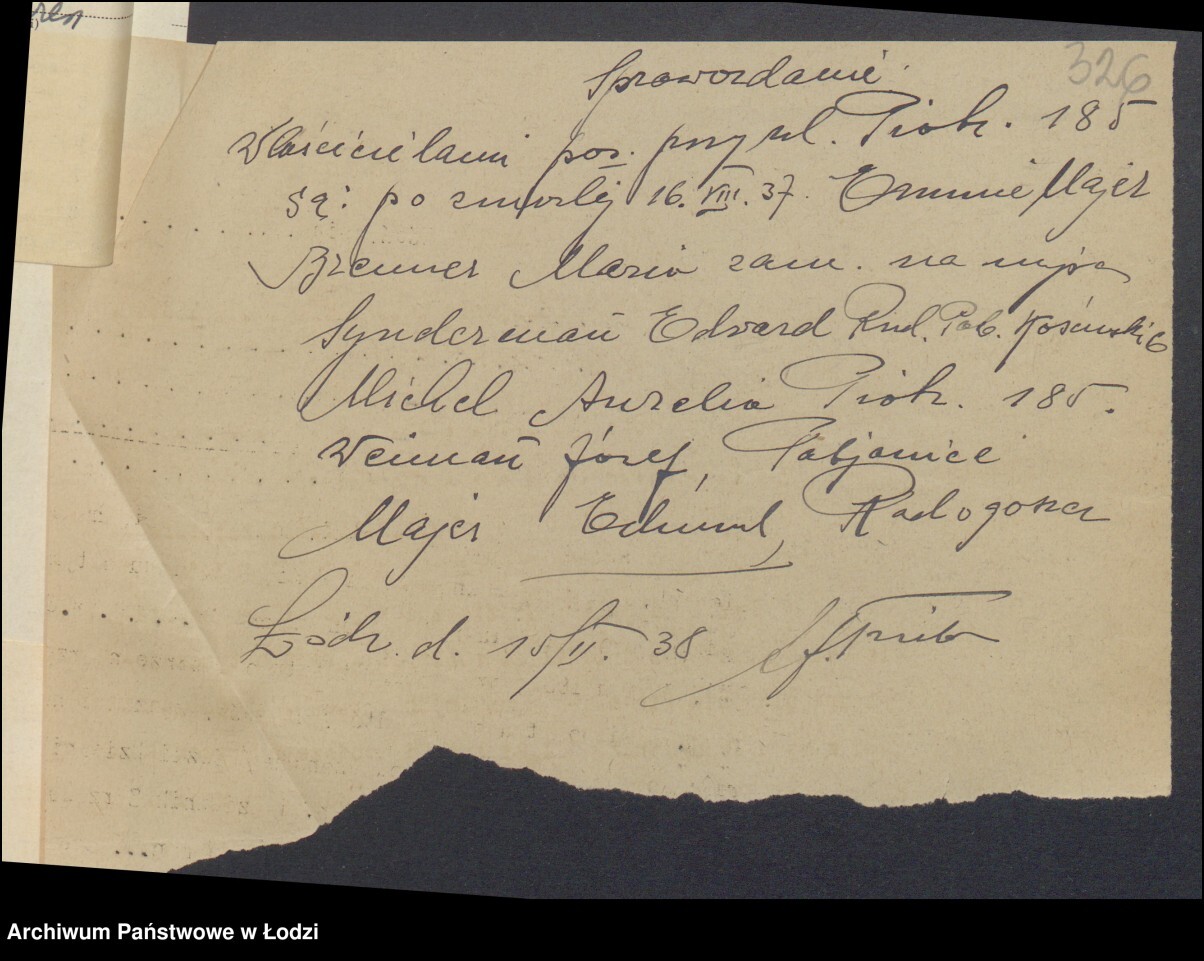 326
Sprawozdanie
Właścicielami pos. przy ul. Piotr. 185
są: po zmarłej 16.VIII.37. Emmie Majer
Brenner Maria zam. na miejsc
Synderman Edward Rud. Pab.
Michel Aurelia Piotr. 185.
Weiman Józef, Pabjanice
Majer Edmund, Radogoszcz
Łódź. d. 15/II. 38
Archiwum Państwowe w Łodzi